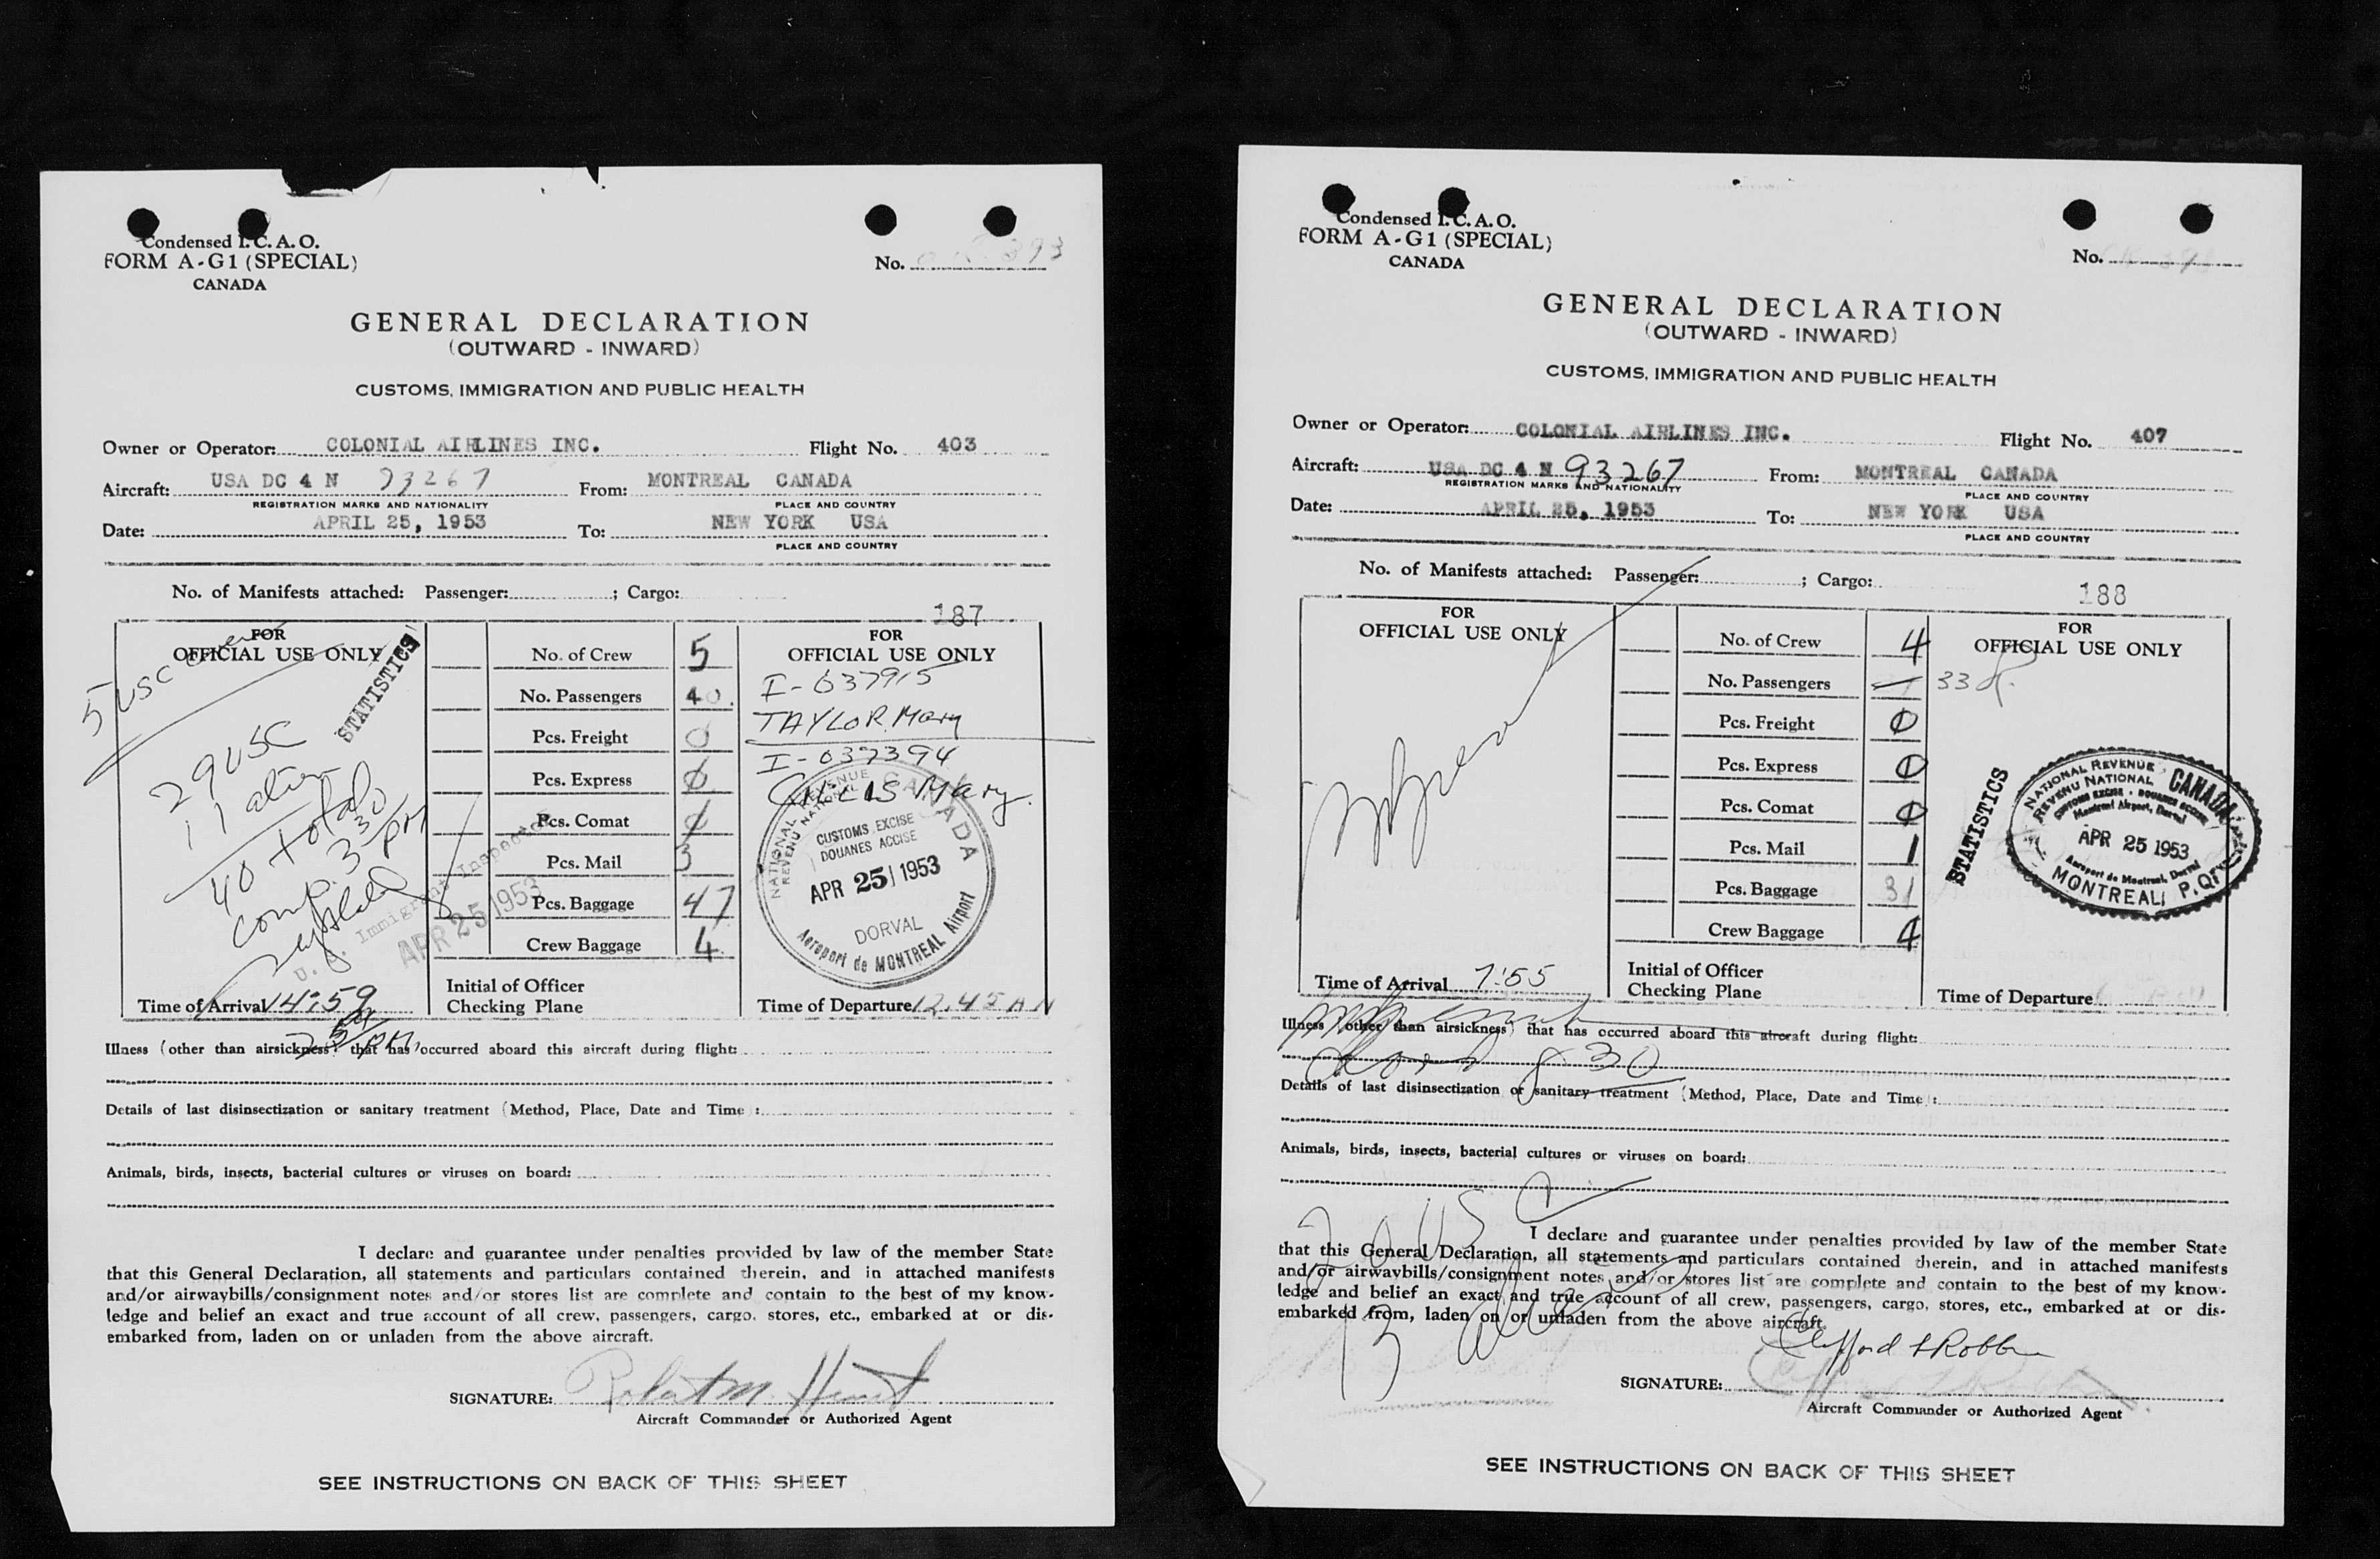 Condensed I.C.A.O.
FORM A-G1 (SPECIAL)
CANADA
No. 393
GENERAL DECLARATION
(OUTWARD - INWARD)
CUSTOMS, IMMIGRATION AND PUBLIC HEALTH
Owner or Operator: COLONIAL AIRLINES INC. Flight No. 403
Aircraft: USA DC 4 N 93267 From: MONTREAL CANADA
REGISTRATION MARKS AND NATIONALITY PLACE AND COUNTRY
Date: APRIL 25, 1953 To: NEW YORK USA
PLACE AND COUNTRY
No. of Manifests attached: Passenger: ; Cargo:
187
FOR
OFFICIAL USE ONLY
5 USC crew
STATISTICS
29 USC
11 alien
40 total
comp. 330 PM
U.S. Immigrant Inspector
APR 25 1953
Time of Arrival 14:59
No. of Crew 5
No. Passengers 40
Pcs. Freight 0
Pcs. Express 0
Pcs. Comat 0
Pcs. Mail 3
Pcs. Baggage 47
Crew Baggage 4
Initial of Officer
Checking Plane
FOR
OFFICIAL USE ONLY
I-037915
TAYLOR Mary
I-037394
Mary
NATIONAL REVENUE CANADA
REVENU NATIONAL
CUSTOMS EXCISE
DOUANES ACCISE
APR 25 1953
DORVAL
Aeroport de MONTREAL Airport
Time of Departure 12.45
Illness (other than airsickness) that has occurred aboard this aircraft during flight:
Details of last disinsectization or sanitary treatment (Method, Place, Date and Time):
Animals, birds, insects, bacterial cultures or viruses on board:
I declare and guarantee under penalties provided by law of the member State
that this General Declaration, all statements and particulars contained therein, and in attached manifests
and/or airwaybills/consignment notes and/or stores list are complete and contain to the best of my know-
ledge and belief an exact and true account of all crew, passengers, cargo, stores, etc., embarked at or dis-
embarked from, laden on or unladen from the above aircraft.
SIGNATURE: Robert M.
Aircraft Commander or Authorized Agent
SEE INSTRUCTIONS ON BACK OF THIS SHEET
Condensed I.C.A.O.
FORM A-G1 (SPECIAL)
CANADA
No.
GENERAL DECLARATION
(OUTWARD - INWARD)
CUSTOMS, IMMIGRATION AND PUBLIC HEALTH
Owner or Operator: COLONIAL AIRLINES INC. Flight No. 407
Aircraft: USA DC 4 N 93267 From: MONTREAL CANADA
REGISTRATION MARKS AND NATIONALITY PLACE AND COUNTRY
Date: APRIL 25, 1953 To: NEW YORK USA
PLACE AND COUNTRY
No. of Manifests attached: Passenger: ; Cargo:
188
FOR
OFFICIAL USE ONLY
Time of Arrival 7:55
No. of Crew 4
No. Passengers 33
Pcs. Freight 0
Pcs. Express 0
Pcs. Comat 0
Pcs. Mail 1
Pcs. Baggage 31
Crew Baggage 4
Initial of Officer
Checking Plane
FOR
OFFICIAL USE ONLY
STATISTICS
NATIONAL REVENUE CANADA
REVENU NATIONAL
CUSTOMS EXCISE - DOUANES ACCISE
Montreal Airport, Dorval
APR 25 1953
Aeroport de Montreal, Dorval
MONTREAL P.Q.
Time of Departure
Illness (other than airsickness) that has occurred aboard this aircraft during flight:
8 30
Details of last disinsectization or sanitary treatment (Method, Place, Date and Time):
Animals, birds, insects, bacterial cultures or viruses on board:
20 USC
I declare and guarantee under penalties provided by law of the member State
that this General Declaration, all statements and particulars contained therein, and in attached manifests
and/or airwaybills/consignment notes and/or stores list are complete and contain to the best of my know-
ledge and belief an exact and true account of all crew, passengers, cargo, stores, etc., embarked at or dis-
embarked from, laden on or unladen from the above aircraft.
13
SIGNATURE: Clifford
Aircraft Commander or Authorized Agent
SEE INSTRUCTIONS ON BACK OF THIS SHEET